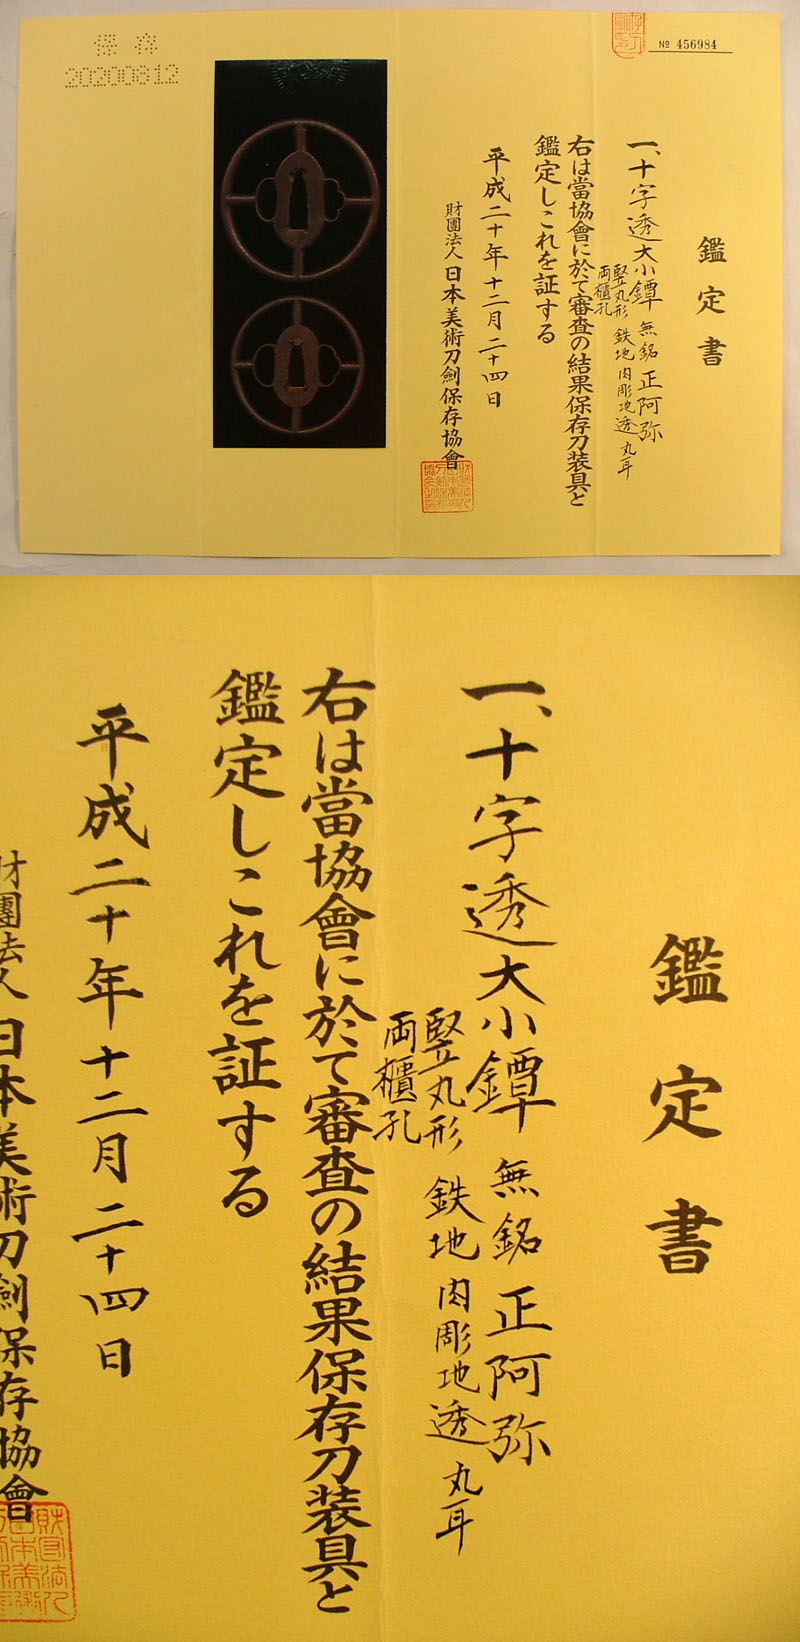 保存
20200812
№ 456984
鑑定書
一、十字透大小鐔 無銘 正阿弥
竪丸形 鉄地 肉彫地透 丸耳
両櫃孔
右は當協會に於て審査の結果保存刀装具と
鑑定しこれを証する
平成二十年十二月二十四日
財團法人 日本美術刀劍保存協會
鑑定書
一、十字透大小鐔 無銘 正阿弥
竪丸形 鉄地 肉彫地透 丸耳
両櫃孔
右は當協會に於て審査の結果保存刀装具と
鑑定しこれを証する
平成二十年十二月二十四日
財團法人 日本美術刀劍保存協會